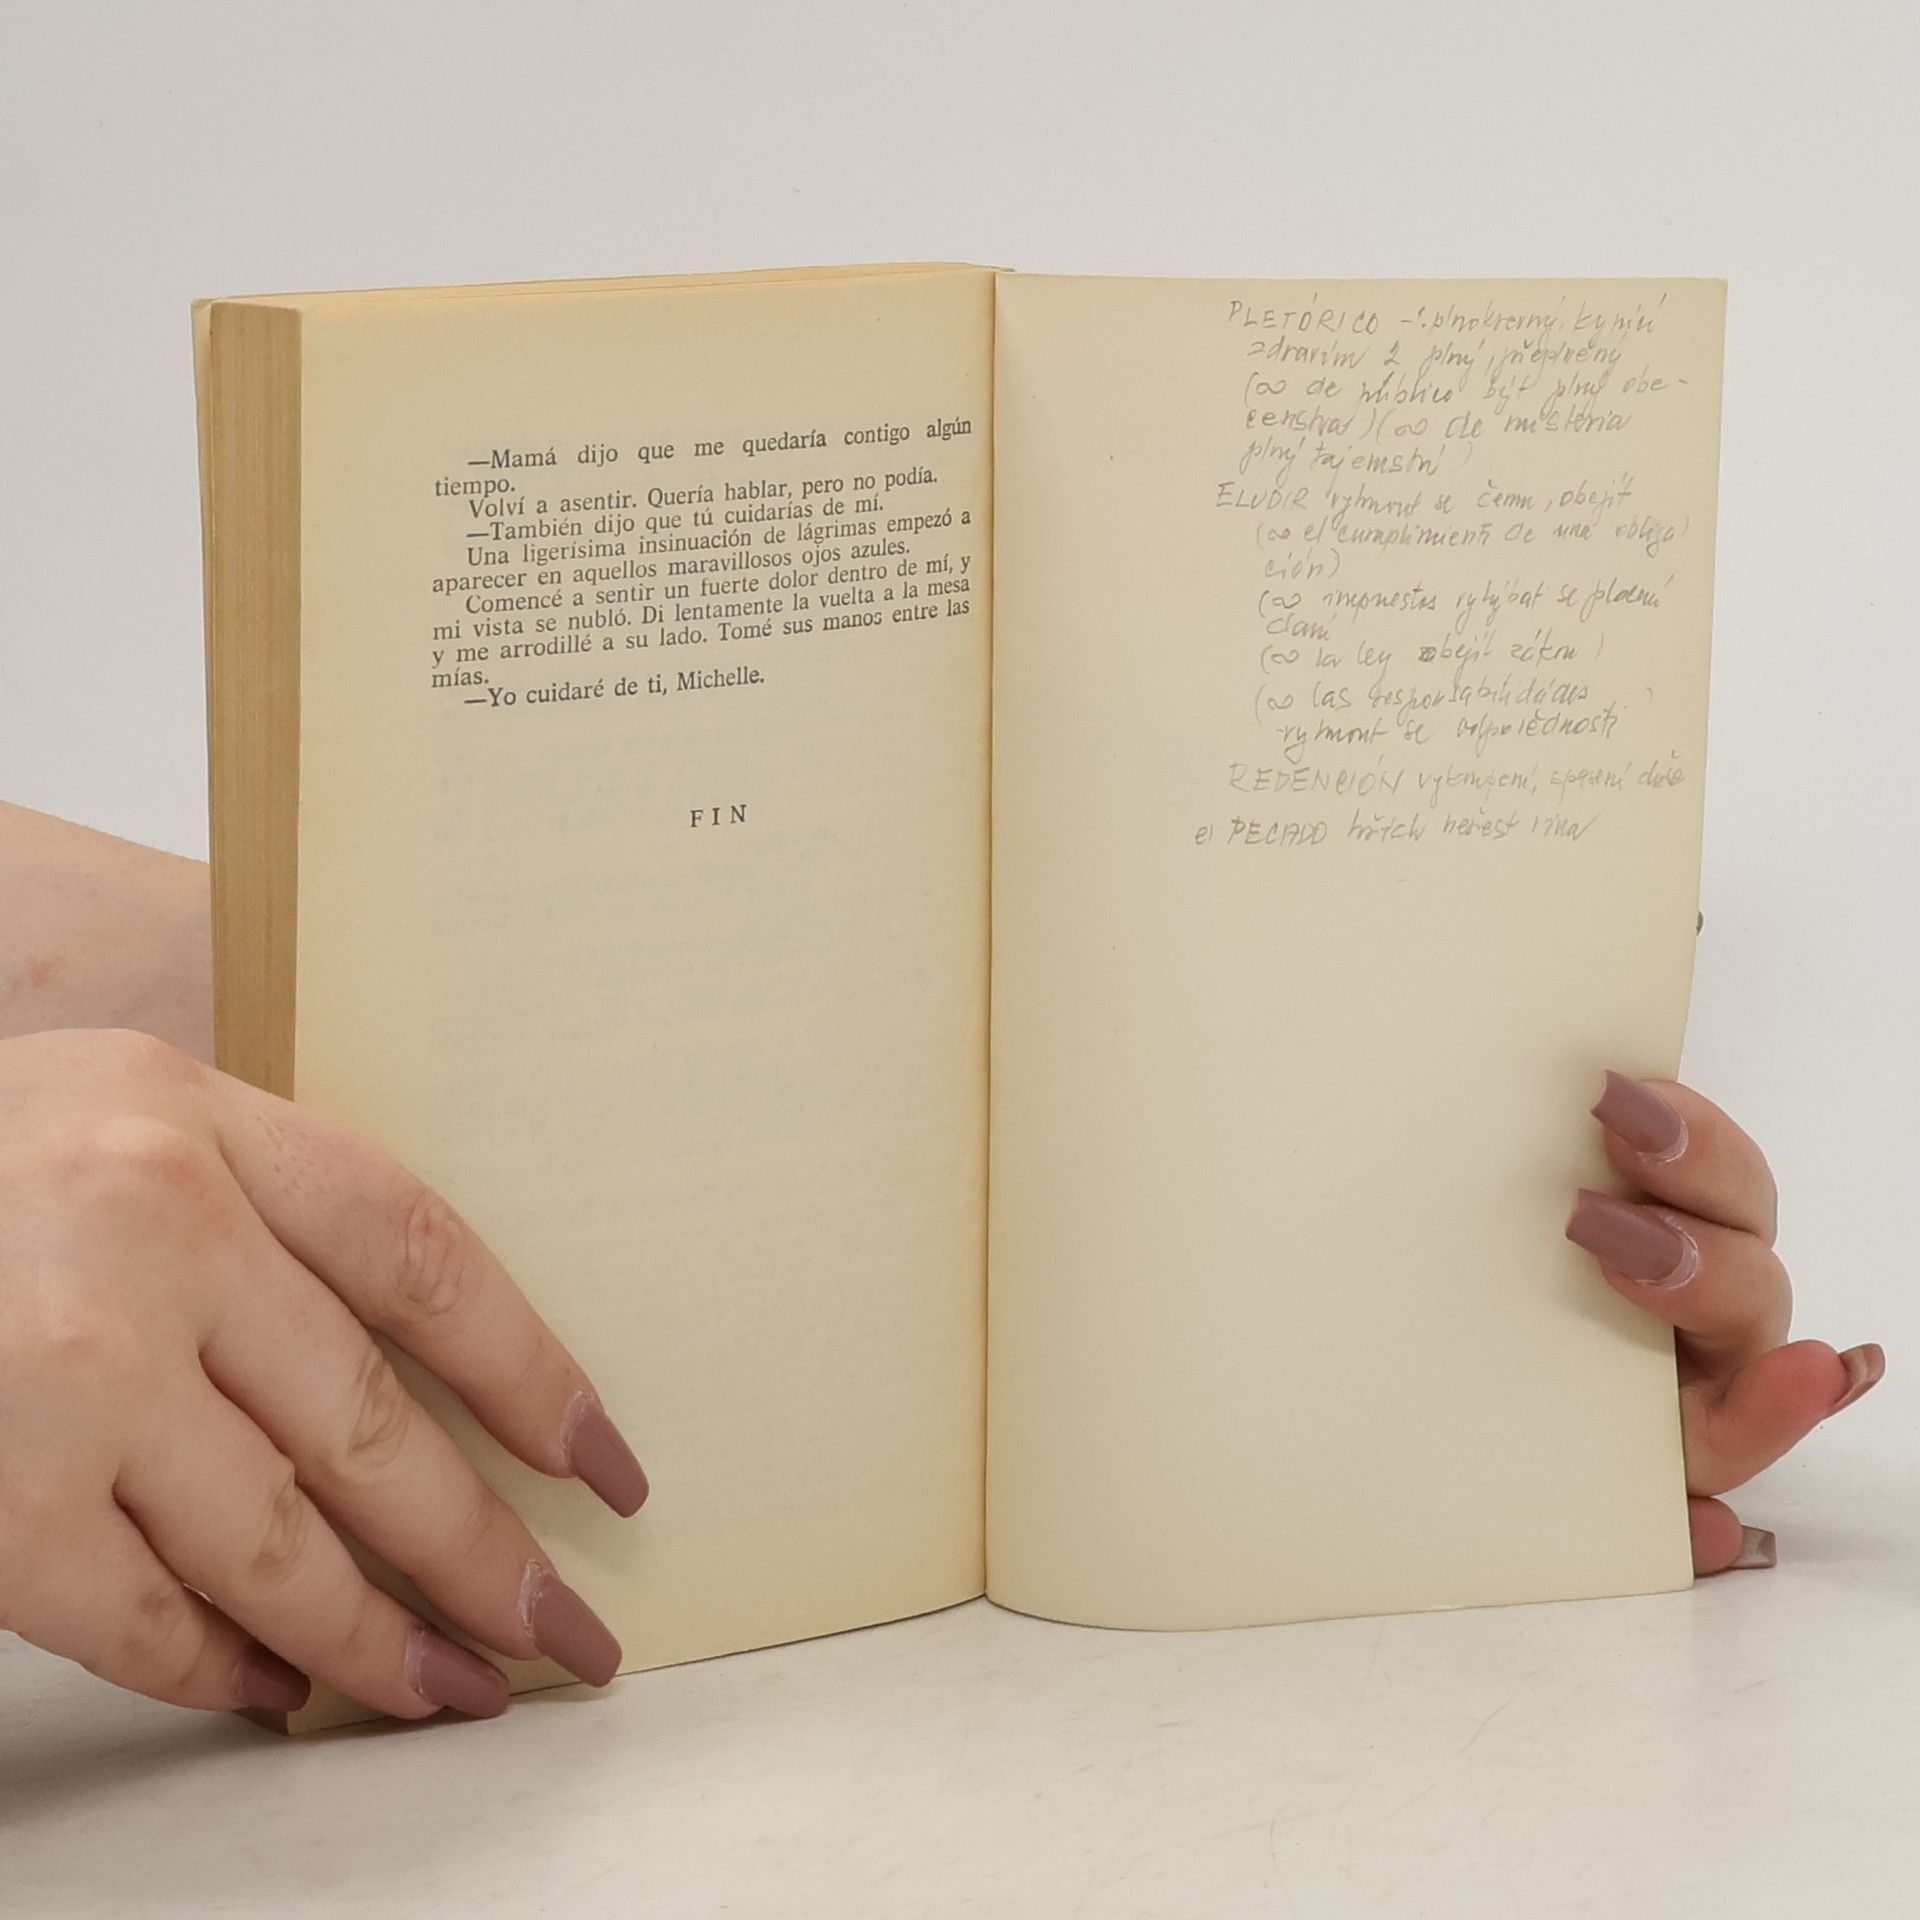 —Mamá dijo que me quedaría contigo algún
tiempo.
Volví a asentir. Quería hablar, pero no podía.
—También dijo que tú cuidarías de mí.
Una ligerísima insinuación de lágrimas empezó a
aparecer en aquellos maravillosos ojos azules.
Comencé a sentir un fuerte dolor dentro de mí, y
mi vista se nubló. Di lentamente la vuelta a la mesa
y me arrodillé a su lado. Tomé sus manos entre las
mías.
—Yo cuidaré de ti, Michelle.
FIN
PLETÓRICO - 1. plnokrevný,
zdravím 2 plný, přeplněný
(∞ de público být plný obe-
censtva) (∞ de misteria
plný tajemství)
ELUDIR vyhnout se čemu, obejít
(∞ el cumplimient de una obliga
ción)
(∞ impuestos vyhýbat se placení
daní
(∞ la ley obejít zákon)
(∞ las responsabilidades)
vyhnout se odpovědnosti
REDENCIÓN vykoupení, spasení duše
el PECADO hřích neřest vina